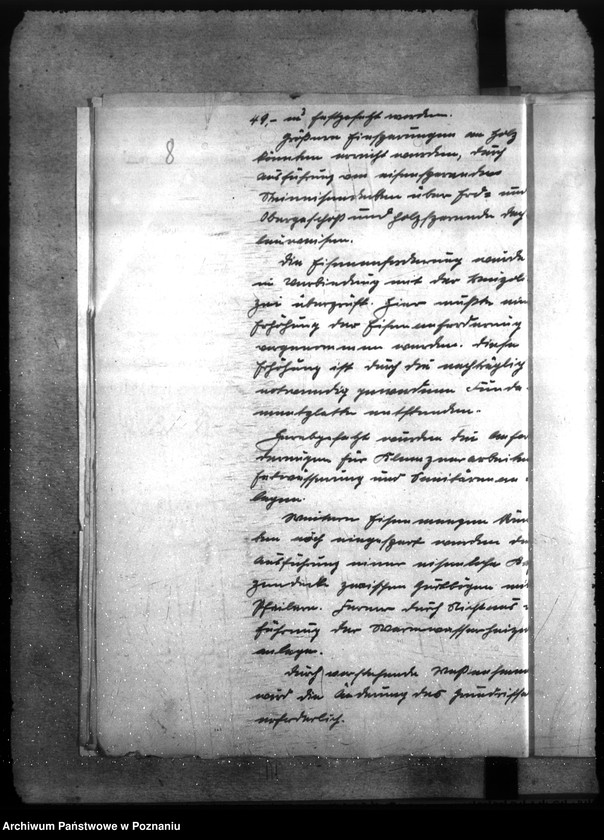 8
49,- m³ festgesetzt werden.
Größere Einsparungen an Holz
könnten erreicht werden, durch
Ausführung von eisensparenden
Steineisendecken über Erd= und
Obergeschoß und holzsparende Dach
bauweisen.
Die Eisenanforderung wurde
in Verbindung mit der
überprüft. Hier mußte eine
Erhöhung der Eisenanforderung
vorgenommen werden. Diese
Erhöhung ist durch die nachträglich
notwendig gewordene Funda-
mentplatte entstanden.
Herabgesetzt wurden die Anfor
derungen für Klempnerarbeiten
Entwässerung und Sanitären an-
lagen.
Weitere Eisenmengen könn
ten noch eingespart werden
Ausführung einer eisenlose
zwischen Gurtbögen
Pfeilern. Ferner durch Nichtaus-
führung der Warmwasserheizungs
anlage.
Durch vorstehende Maßnahmen
wird die Änderung des Grundrisses
erforderlich.
Archiwum Państwowe w Poznaniu